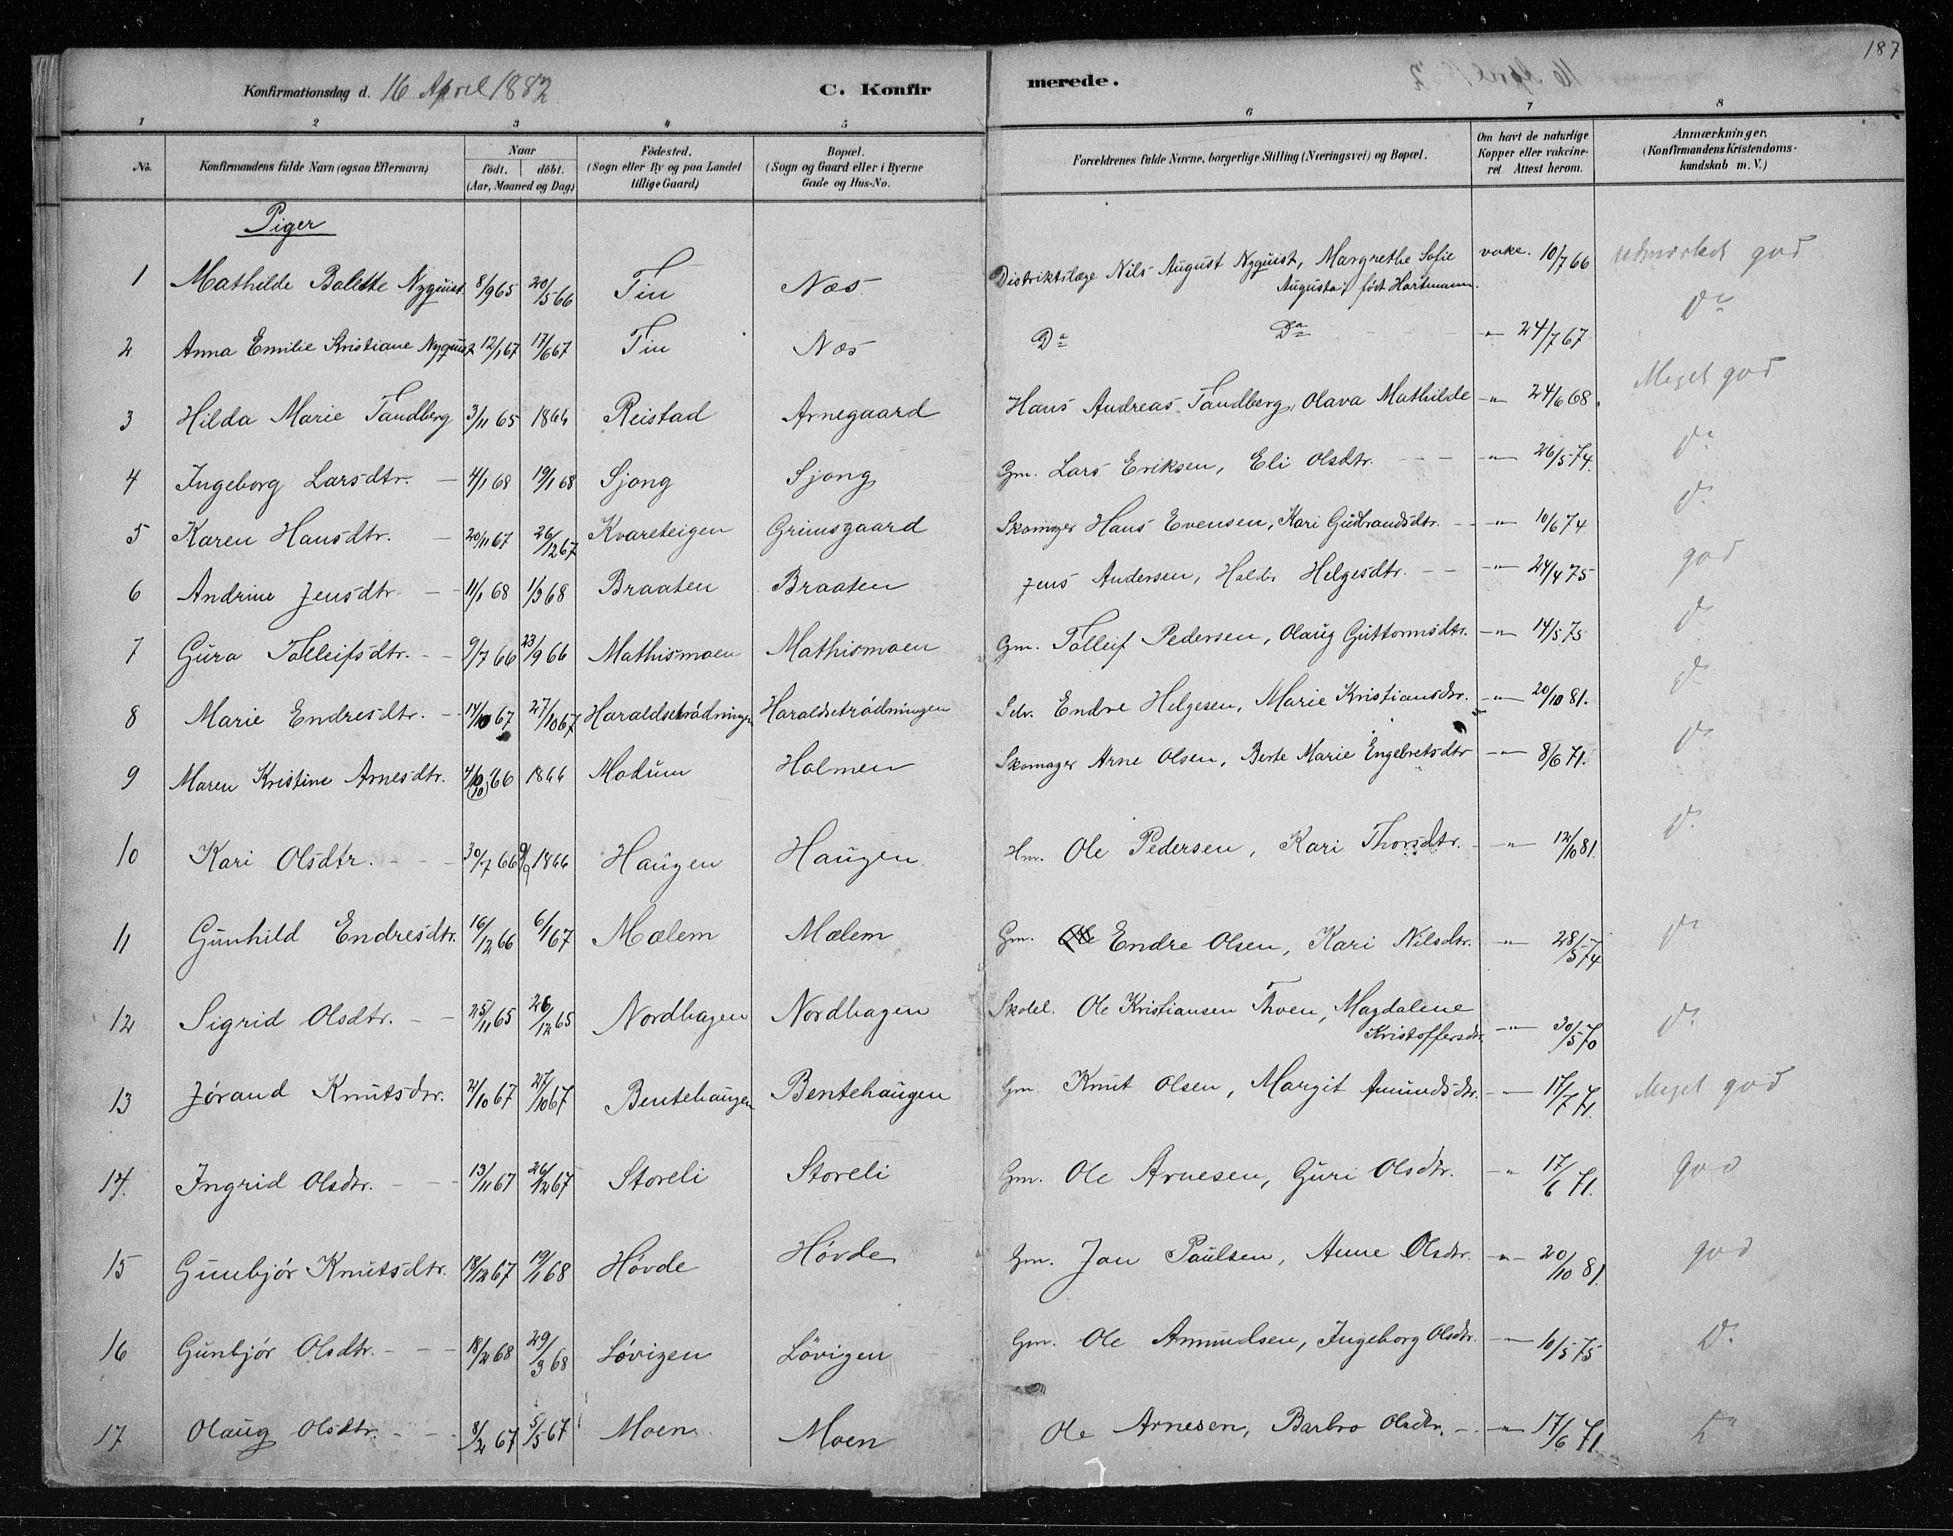 187
Konfirmationsdag d. 16 April 1882 C. Konfirmerede.
1 2 3 4 5 6 7 8
No. Konfirmandens fulde Navn (ogsaa Efternavn) Naar födt. döbt. (Aar, Maaned og Dag) Födested. (Sogn eller By og paa Landet tillige Gaard) Bopæl. (Sogn og Gaard eller i Byerne Gade og Hus-No. Forældrenes fulde Navne, borgerlige Stilling (Næringsvei) og Bopæl. Om havt de naturlige Kopper eller vakcineret Attest herom. Anmærkninger. (Konfirmandens Kristendomskundskab m. V.)
Piger
1 Mathilde Bolette Nyquist 8/9 65 20/5 66 Tin Næs Distriktslæge Nils August Nyquist, Margrethe Sofie Augusta, født Hartmann. vakc. 10/7 66 udmærket god
2 Anna Emilie Kristiane Nyquist 12/1 67 17/6 67 Tin Næs Do Do " 24/7 67 Do
3 Hilda Marie Tandberg 3/11 65 1866 Reistad Arnegaard Hans Andreas Tandberg, Olava Mathilde -"- 24/6 68. Meget god
4 Ingeborg Larsdtr. 4/1 68 19/1 68 Sjong Sjong Gm. Lars Eriksen, Eli Olsdtr. -"- 26/5 74. Do
5 Karen Hansdtr. 20/11 67 26/12 67 Kvareteigen Grimsgaard Skomager Hans Evensen, Kari Gudbrandsdtr. -"- 10/6 74 Do
6 Andrine Jensdtr. 11/1 68 1/3 68 Braaten Braaten Jens Andersen, Helgesdtr. -"- 24/4 75 god
7 Gura Tolleifsdtr. 9/7 66 23/9 66 Mathismoen Mathismoen Gm. Tolleif Pedersen, Olaug Guttormsdtr. -"- 14/5 75 Do
8 Marie Endresdtr. 14/10 67 27/10 67 Haraldsetrødningen Haraldsetrødningen Selv. Endre Helgesen, Marie Kristiansdtr. -"- 20/10 81. Do
9 Maren Kristine Arnesdtr. 4/10 (10) 66 1866 Modum Holmen Skomager Arne Olsen, Berte Marie Engebretsdtr -"- 8/6 71. Do
10 Kari Olsdtr. 30/7 66 9/9 1866 Haugen Haugen Hm. Ole Pedersen, Kari Thorsdtr. -"- 12/10 81. Do
11 Gunhild Endresdtr. 16/12 66 6/1 67 Mælem Mælem Gm. Ole Endre Olsen, Kari Nilsdtr. -"- 28/5 74 Do
12 Sigrid Olsdtr. 25/11 65 26/12 65 Nordhagen Nordhagen Skolel. Ole Kristiansen Thoen, Magdalene Kristoffersdtr. -"- 30/5 70 Do
13 Jørand Knutsdtr. 2/10 67 27/10 67 Bentehaugen Bentehaugen Gm Knut Olsen, Margit Amundsdtr. -"- 17/7 71. Meget god
14. Ingrid Olsdtr. 13/11 67 26/12 67 Storeli Storeli Gm. Ole Arnesen, Guri Olsdtr. -"- 17/6 71. god
15 Gunbjør Knutsdtr. 18/12 67 19/1 68 Høvde Høvde Gm. Jon Paulsen, Anne Olsdtr. -"- 20/10 81. god
16 Gunbjør Olsdtr. 18/2 68 29/3 68 Løvigen Lövigen Gm. Ole Amundsen, Ingeborg Olsdtr. -"- 10/5 75 Do
17 Olaug Olsdtr. 8/2 67 5/5 67 Moen Moen Ole Arnesen, Barbro Olsdtr. -"- 17/6 71. Do